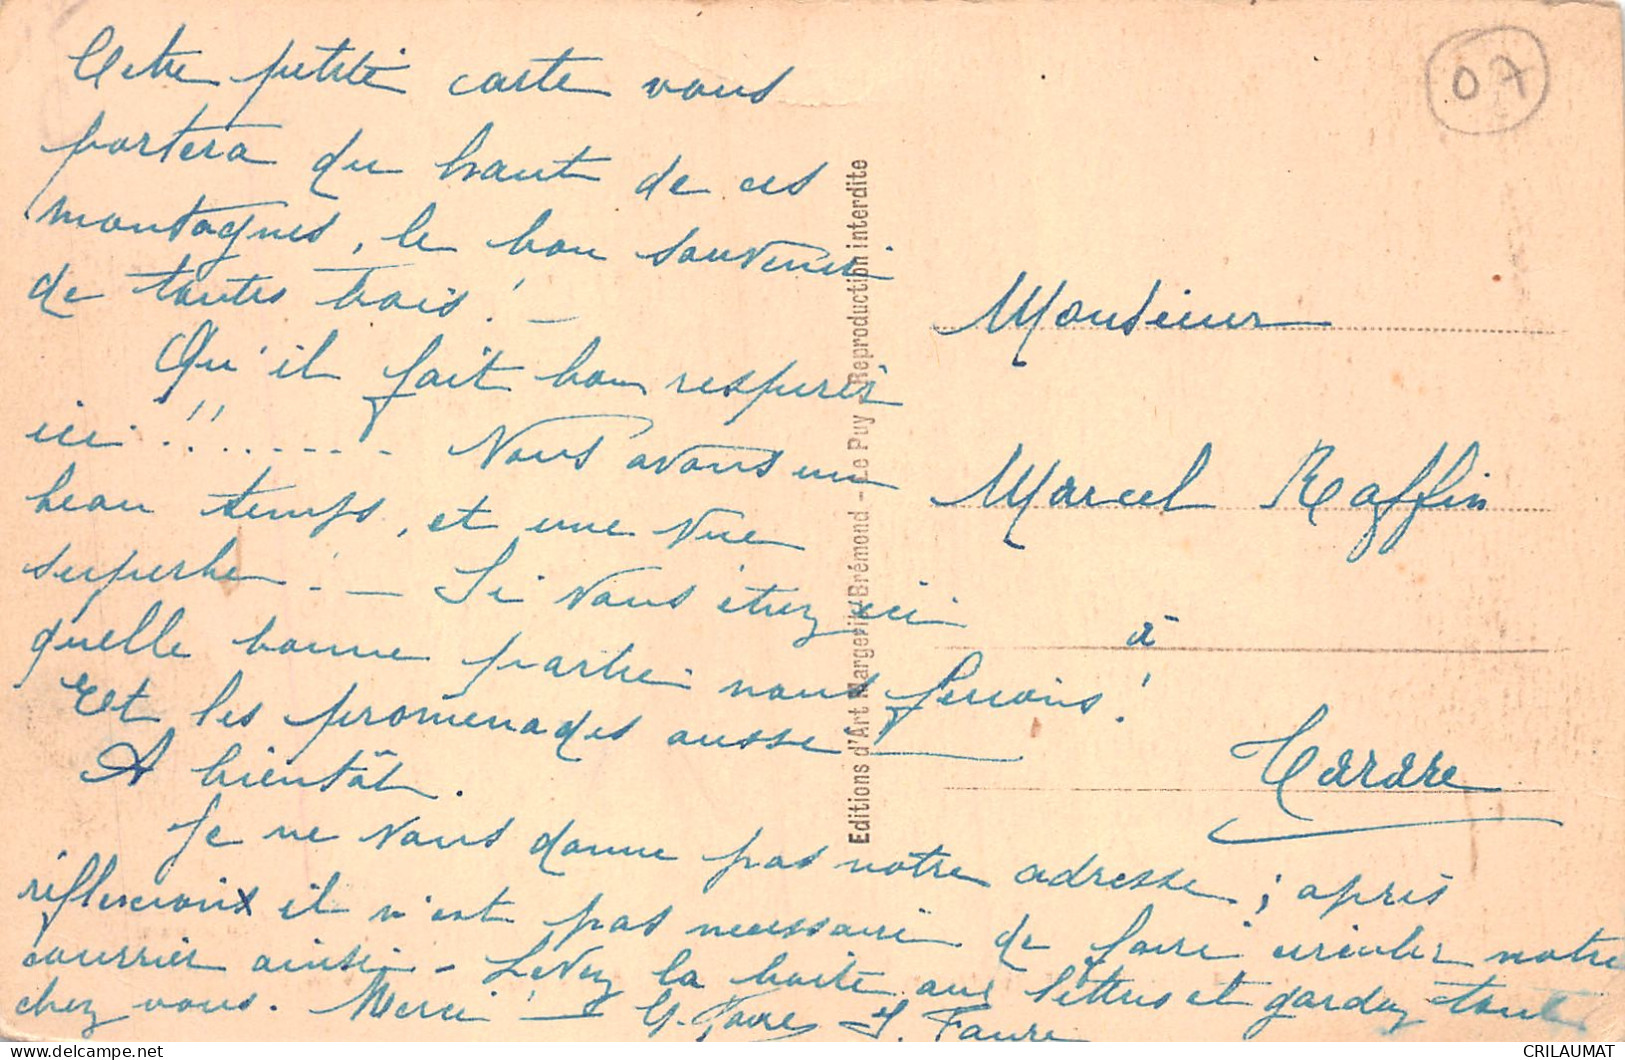 Cette petite carte vous
portera du haut de ces
montagnes, le bon souvenir
de toutes trois ! _
Qu'il fait bon respirer
ici !! ...... Nous avons un
beau temps, et une vue
superbe ! _ Si vous étiez ici
quelle bonne partie nous ferions !
Et les promenades aussi !
A bientôt.
Je ne vous donne pas notre adresse ; après
réflexions il n'est pas nécessaire de faire circuler notre
courrier ainsi - Levez la boite aux lettres et gardez tout
chez vous. Merci ! G. Faure J. Faure
Editions d'Art Margerit/Brémond - Le Puy Reproduction interdite
07
Monsieur
Marcel Raffin
à
Tarare
CRILAUMAT